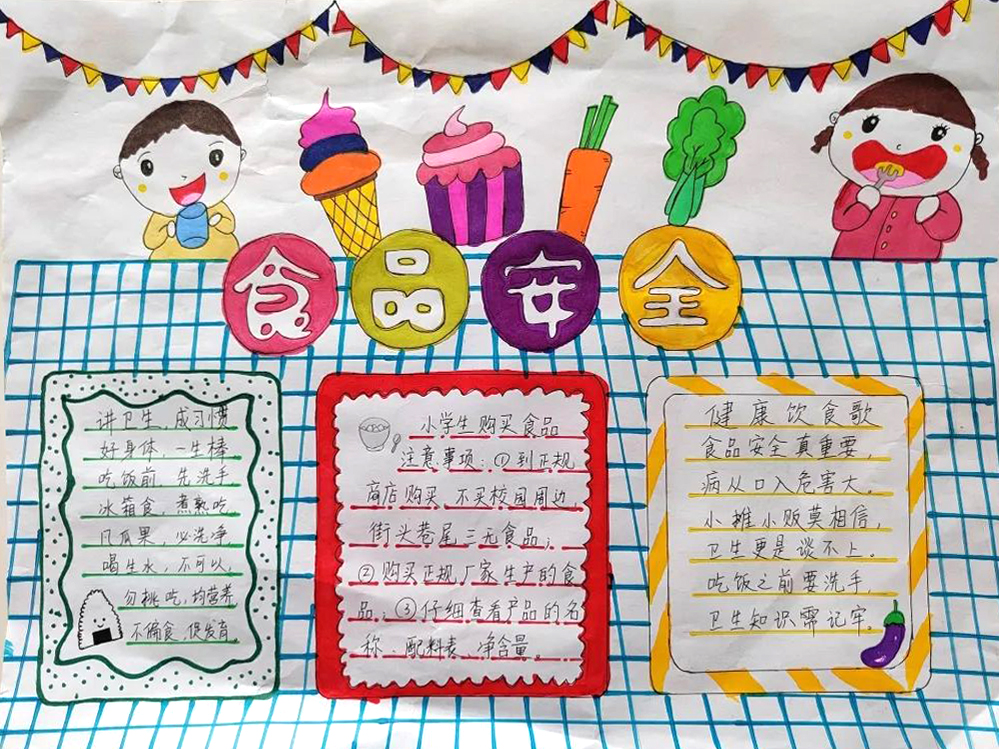 食品安全
讲卫生,成习惯
好身体,一生棒
吃饭前,先洗手
冰箱食,煮熟吃
凡瓜果,必洗净
喝生水,不可以,
勿挑吃,均营养
不偏食,促发育,
小学生购买食品
注意事项:①到正规
商店购买,不买校园周边,
街头巷尾三无食品;
②购买正规厂家生产的食
品;③仔细查看产品的名
称、配料表、净含量。
健康饮食歌
食品安全真重要,
病从口入危害大。
小摊小贩莫相信,
卫生更是谈不上。
吃饭之前要洗手,
卫生知识需记牢。